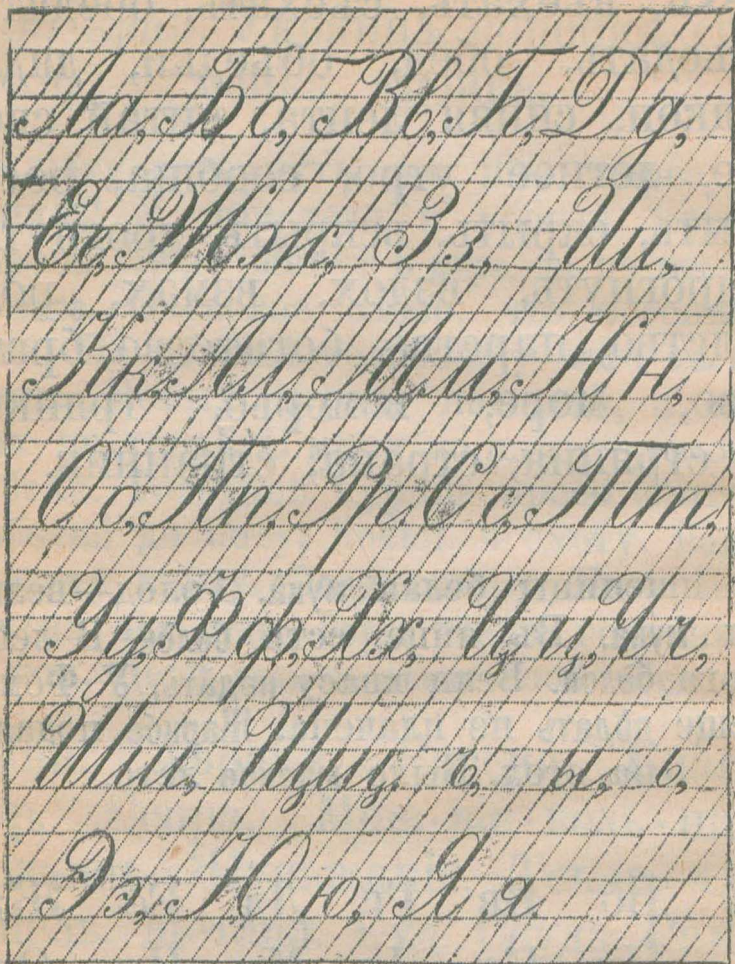 Аа, Бб, Вв, Гг, Дд,
Ее, Жж, Зз, Ии,
Кк, Лл, Мм, Нн,
Оо, Пп, Рр, Сс, Тт,
Уу, Фф, Хх, Цц, Чч,
Шш, Щщ, ъ, ы, ь,
Ээ, Юю, Яя.